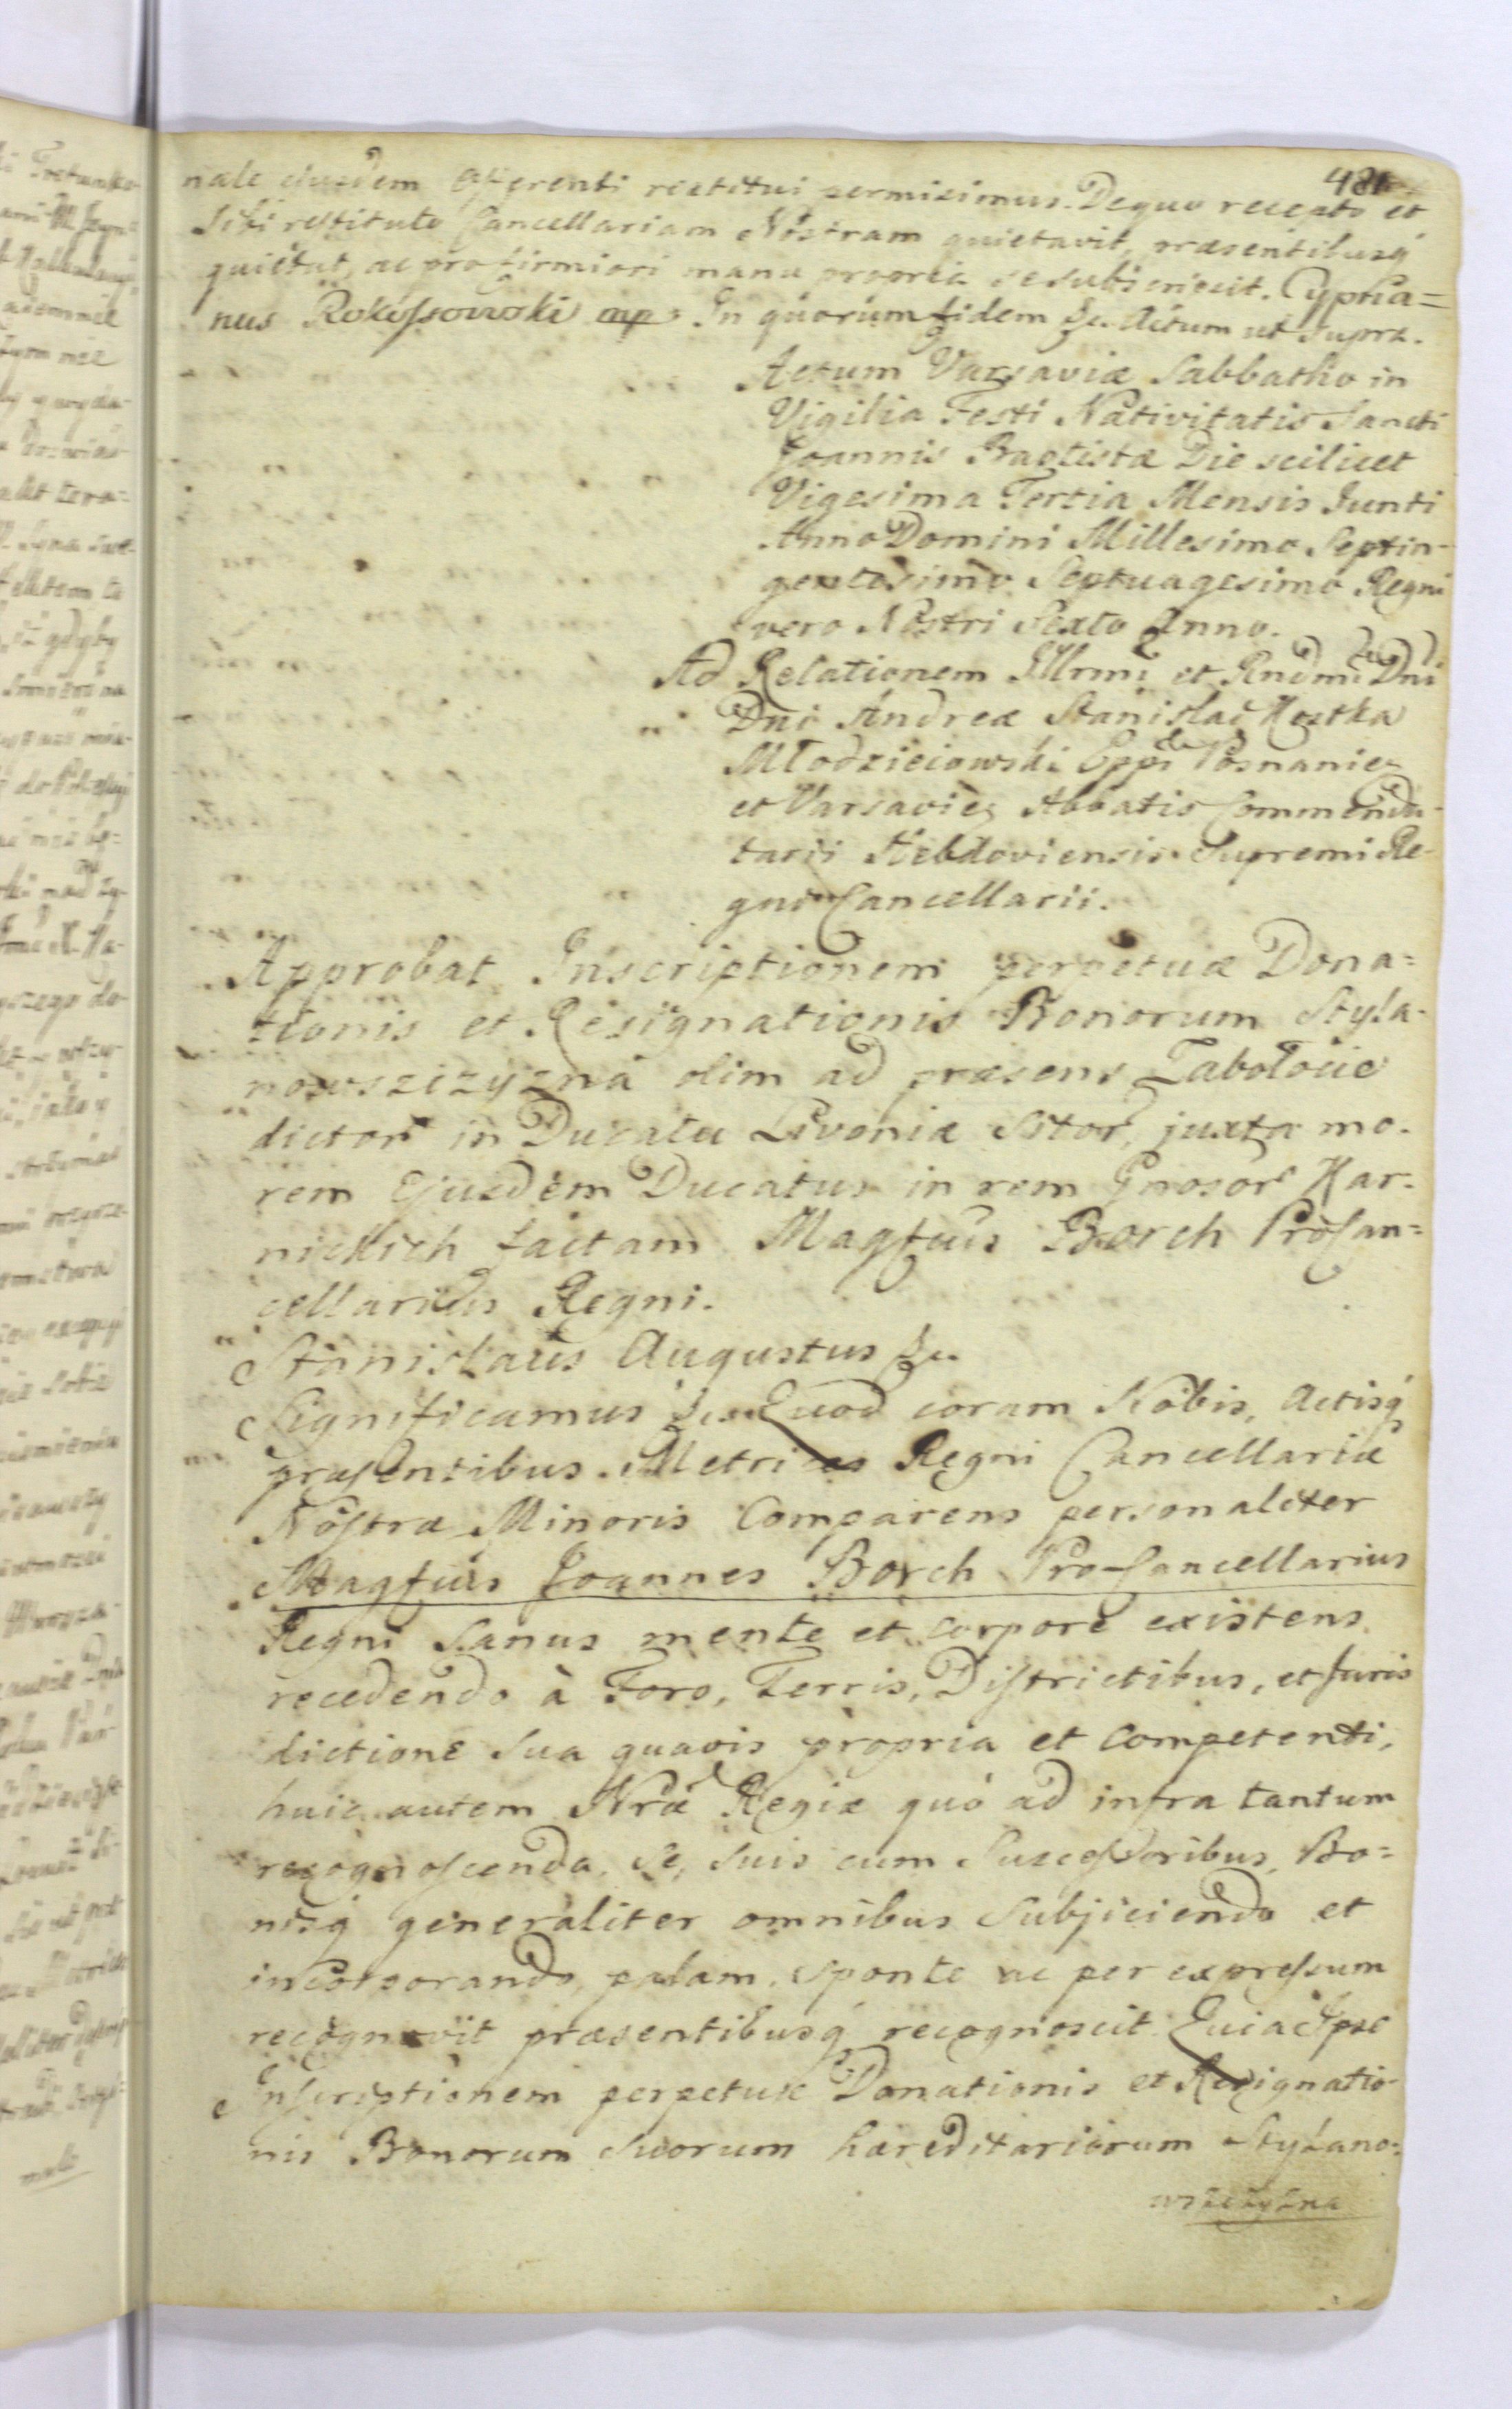 481
nale ejusdem Offerenti restitui permisimus. De quo recepto et
Sibi restituto Cancellariam Nostram quietavit, præsentibusq́
quietat, ac pro firmiori manu propria se subscripsit. Cypria=
nus Rokossowski mp In quorum fidem &c. Actum ut supra.
Actum Varsaviæ Sabbatho in
Vigilia Festi Nativitatis Sancti
Joannis Baptistæ Die scilicet
Vigesima Tertia Mensis Junii
Anno Domini Millesimo Septin-
gentesimo Septuagesimo Regni
vero Nostri Sexto Anno.
Ad Relationem Illrmi et Rndmi Dni
Dni Andreæ Stanislai Kostka
Młodzieiowski Eppi Posnanien
et Varsavien Abbatis Commenda-
tarii Hebdoviensis Supremi Re-
gni Cancellarii.
Approbat Inscriptionem perpetuæ Dona=
tionis et Resignationis Bonorum Styla-
nowszczyzna olim ad præsens Zabołocie
dictor in Ducatu Livoniæ sitor, juxta mo-
rem Ejusdem Ducatus in rem Gnosor Kar-
nickich factam Magfcus Borch ProCan=
cellarius Regni.
Stanislaus Augustus &c.
Significamus &c. Quod coram Nobis, Actisq́
præsentibus Metrices Regni Cancellariæ
Nostræ Minoris Comparens personaliter
Magfcus Joannes Borch Pro-Cancellarius
Regni Sanus mente et corpore existens
recedendo à Foro, Terris, Districtibus, et Juris
dictione Sua quavis propria et Competenti,
huic autem Nræ Regiæ quó ad infra tantum
recognoscenda, Se, Suis cum Successoribus, Bo=
nisq́ generaliter omnibus Subjiciendo et
incorporando, palam, sponte ac per expressum
recognovit præsentibusq́ recognoscit. Quia Ipse
Inscriptionem perpetuæ Donationis et Resignatio-
nis Bonorum Suorum hæreditariorum Stylano-
wszczyzna